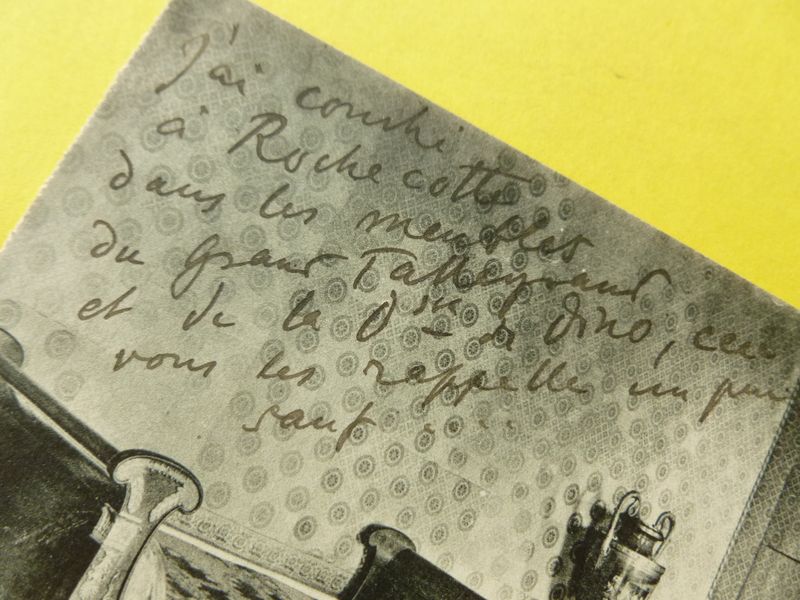 J'ai couché
à Rochecotte
dans les meubles
du grand Talleyrand
et de la Dsse de Dino, ceci
vous les rappelle un peu
sauf ....